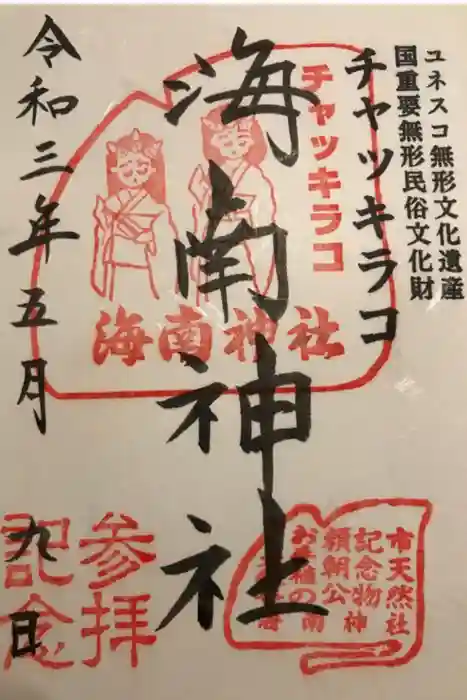 ユネスコ無形文化遺産
国重要無形民俗文化財
チャッキラコ
チャッキラコ
海南神社
海南神社
令和三年五月
九日
参拝
記念
市天然
記念物
頼朝公
お手植の
社
神
南
海